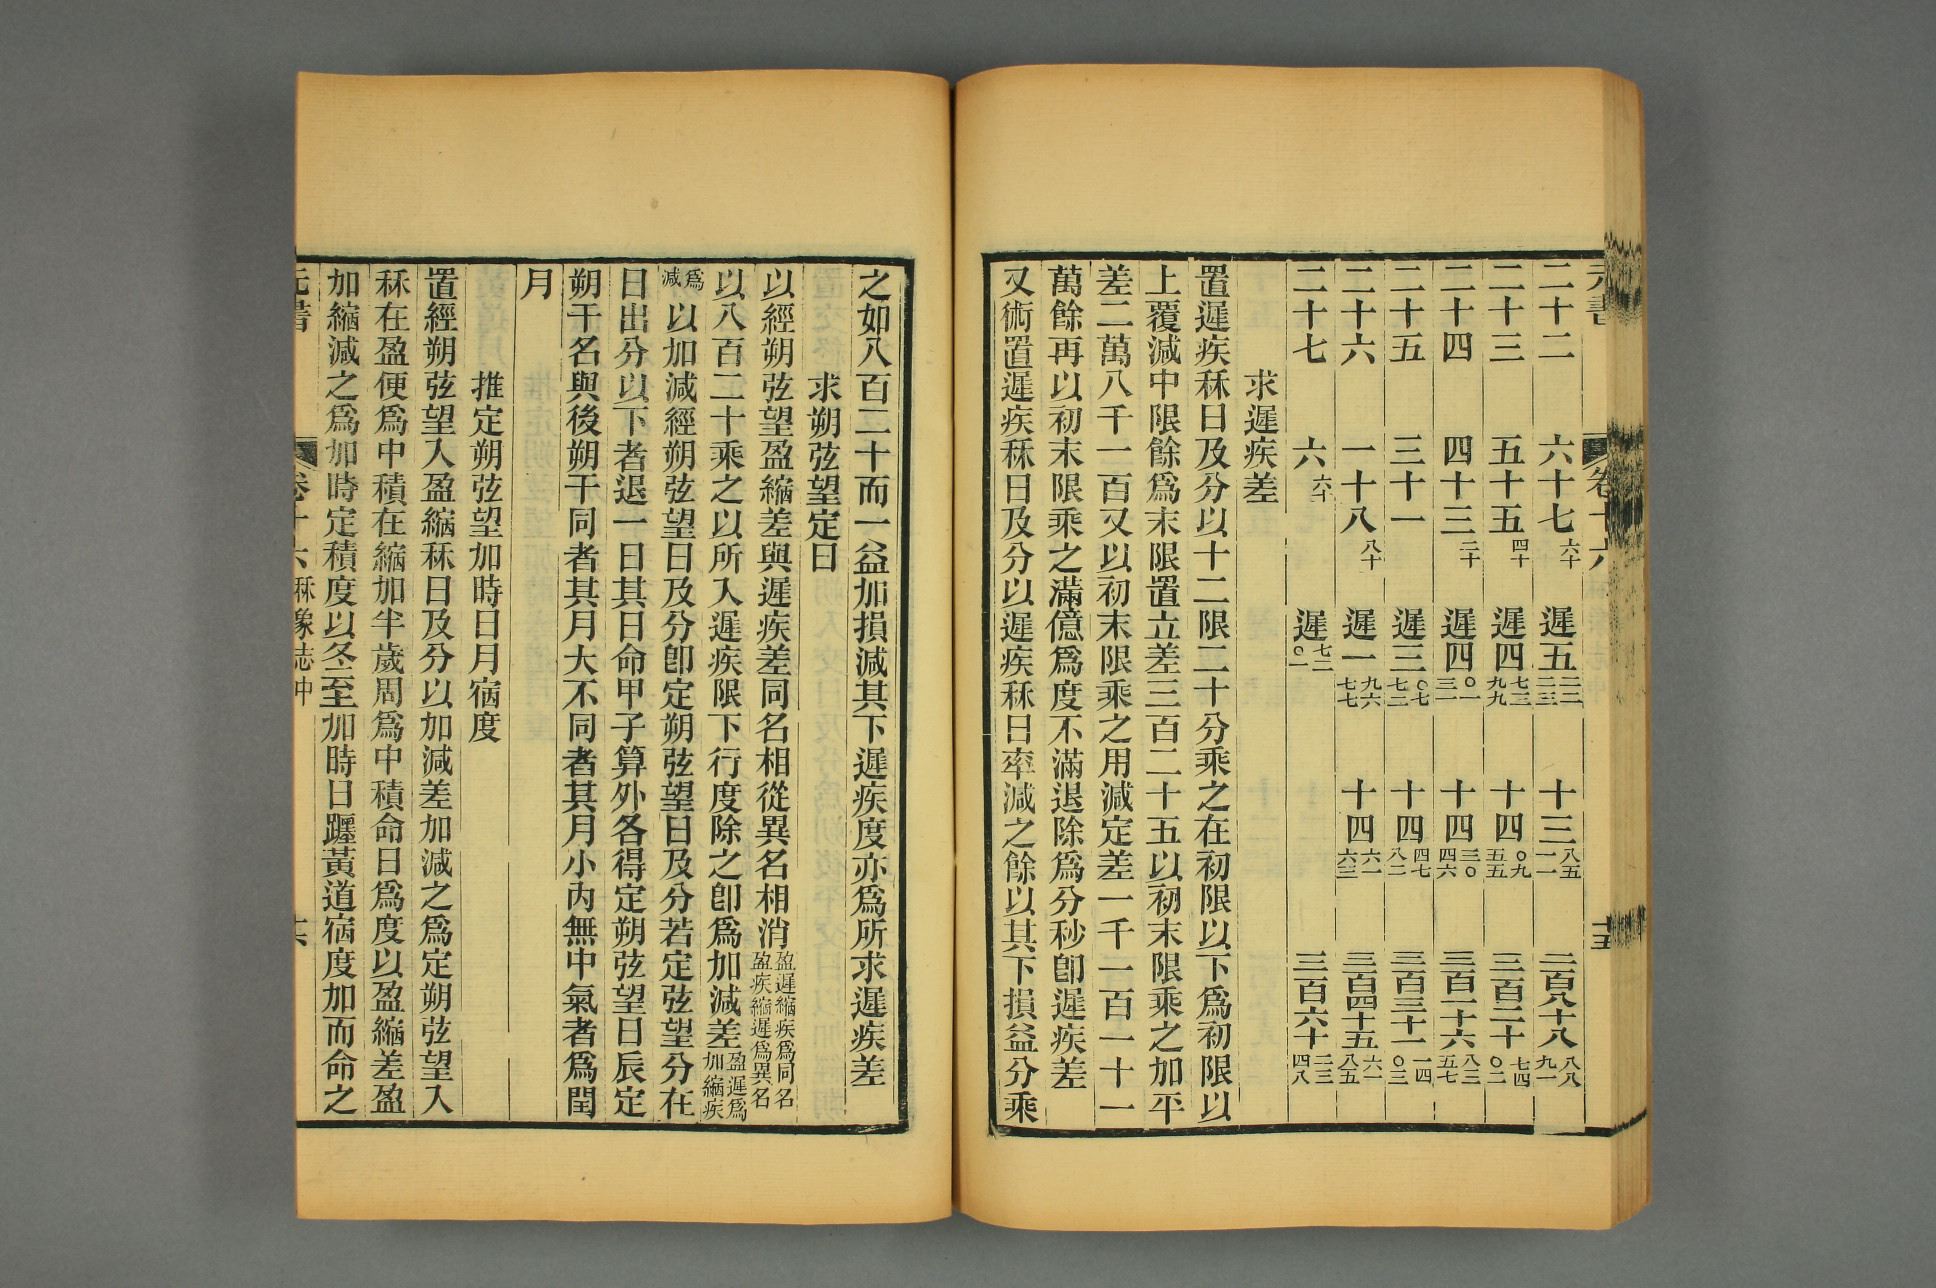 元書 卷十六 十五
二十二 六十七六十 遲五二二二三 十三八五一一 二百八十八八八九一
二十三 五十五四十 遲四七三九九 十四〇九五五 三百二十七四〇二
二十四 四十三二十 遲四〇一三一 十四三〇四六 三百一十六八三五七
二十五 三十一 遲三〇七七二 十四四七八二 三百三十一一四〇三
二十六 一十八八十 遲一九六七七 十四六一六三 三百四十五六一八五
二十七 六六十 遲七二〇一 三百六十二三四八
求遲疾差
置遲疾秝日及分以十二限二十分乘之在初限以下爲初限以
上覆減中限餘爲末限置立差三百二十五以初末限乘之加平
差二萬八千一百又以初末限乘之用減定差一千一百一十一
萬餘再以初末限乘之滿億爲度不滿退除爲分秒卽遲疾差
又術置遲疾秝日及分以遲疾秝日率減之餘以其下損益分乘
之如八百二十而一益加損減其下遲疾度亦爲所求遲疾差
求朔弦望定日
以經朔弦望盈縮差與遲疾差同名相從異名相消盈遲縮疾爲同名盈疾縮遲爲異名
以八百二十乘之以所入遲疾限下行度除之卽爲加減差盈遲爲加縮疾
爲減以加減經朔弦望日及分卽定朔弦望日及分若定弦望分在
日出分以下者退一日其日命甲子算外各得定朔弦望日辰定
朔干名與後朔干同者其月大不同者其月小內無中氣者爲閏
月
推定朔弦望加時日月宿度
置經朔弦望入盈縮秝日及分以加減差加減之爲定朔弦望入
秝在盈便爲中積在縮加半歲周爲中積命日爲度以盈縮差盈
加縮減之爲加時定積度以冬至加時日躔黃道宿度加而命之
元書 卷十六秝象志中 十六